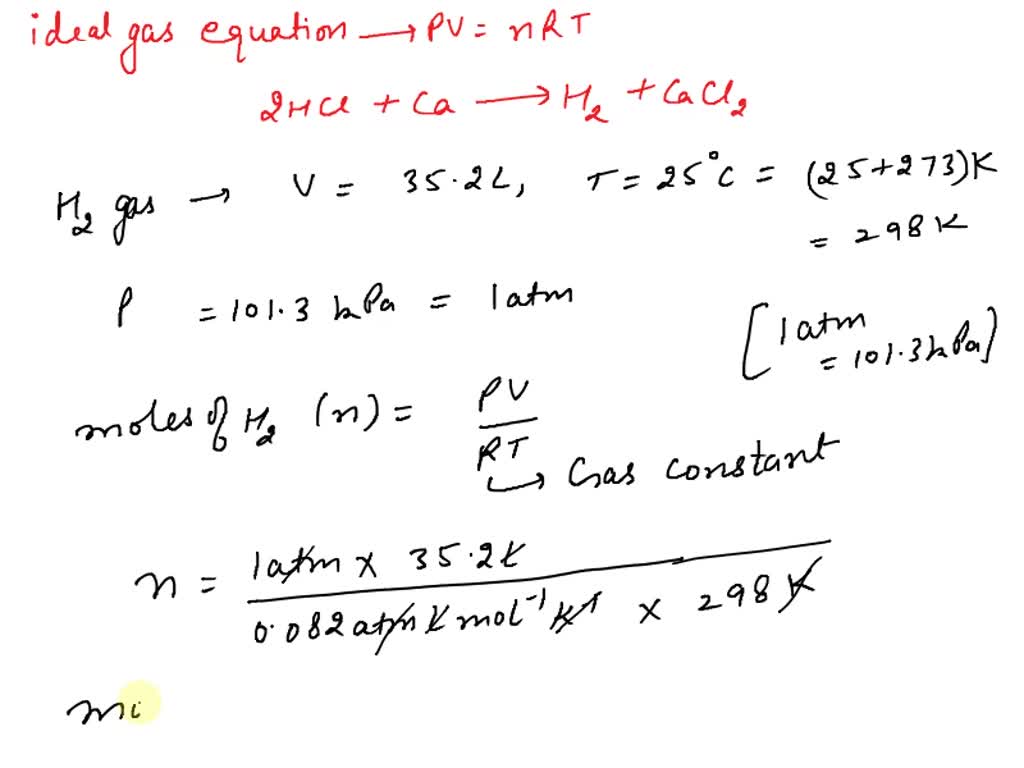 ideal gas equation → PV = nRT
2HCl + Ca → H₂ + CaCl₂
H₂ gas → V = 35.2L, T = 25°C = (25+273)K
= 298 K
P = 101.3 kPa = 1atm
[1atm
= 101.3kPa]
moles of H₂ (n) = PV
RT
→ Gas constant
n = 1atm x 35.2L
0.082 atm L mol⁻¹ K⁻¹ x 298 K